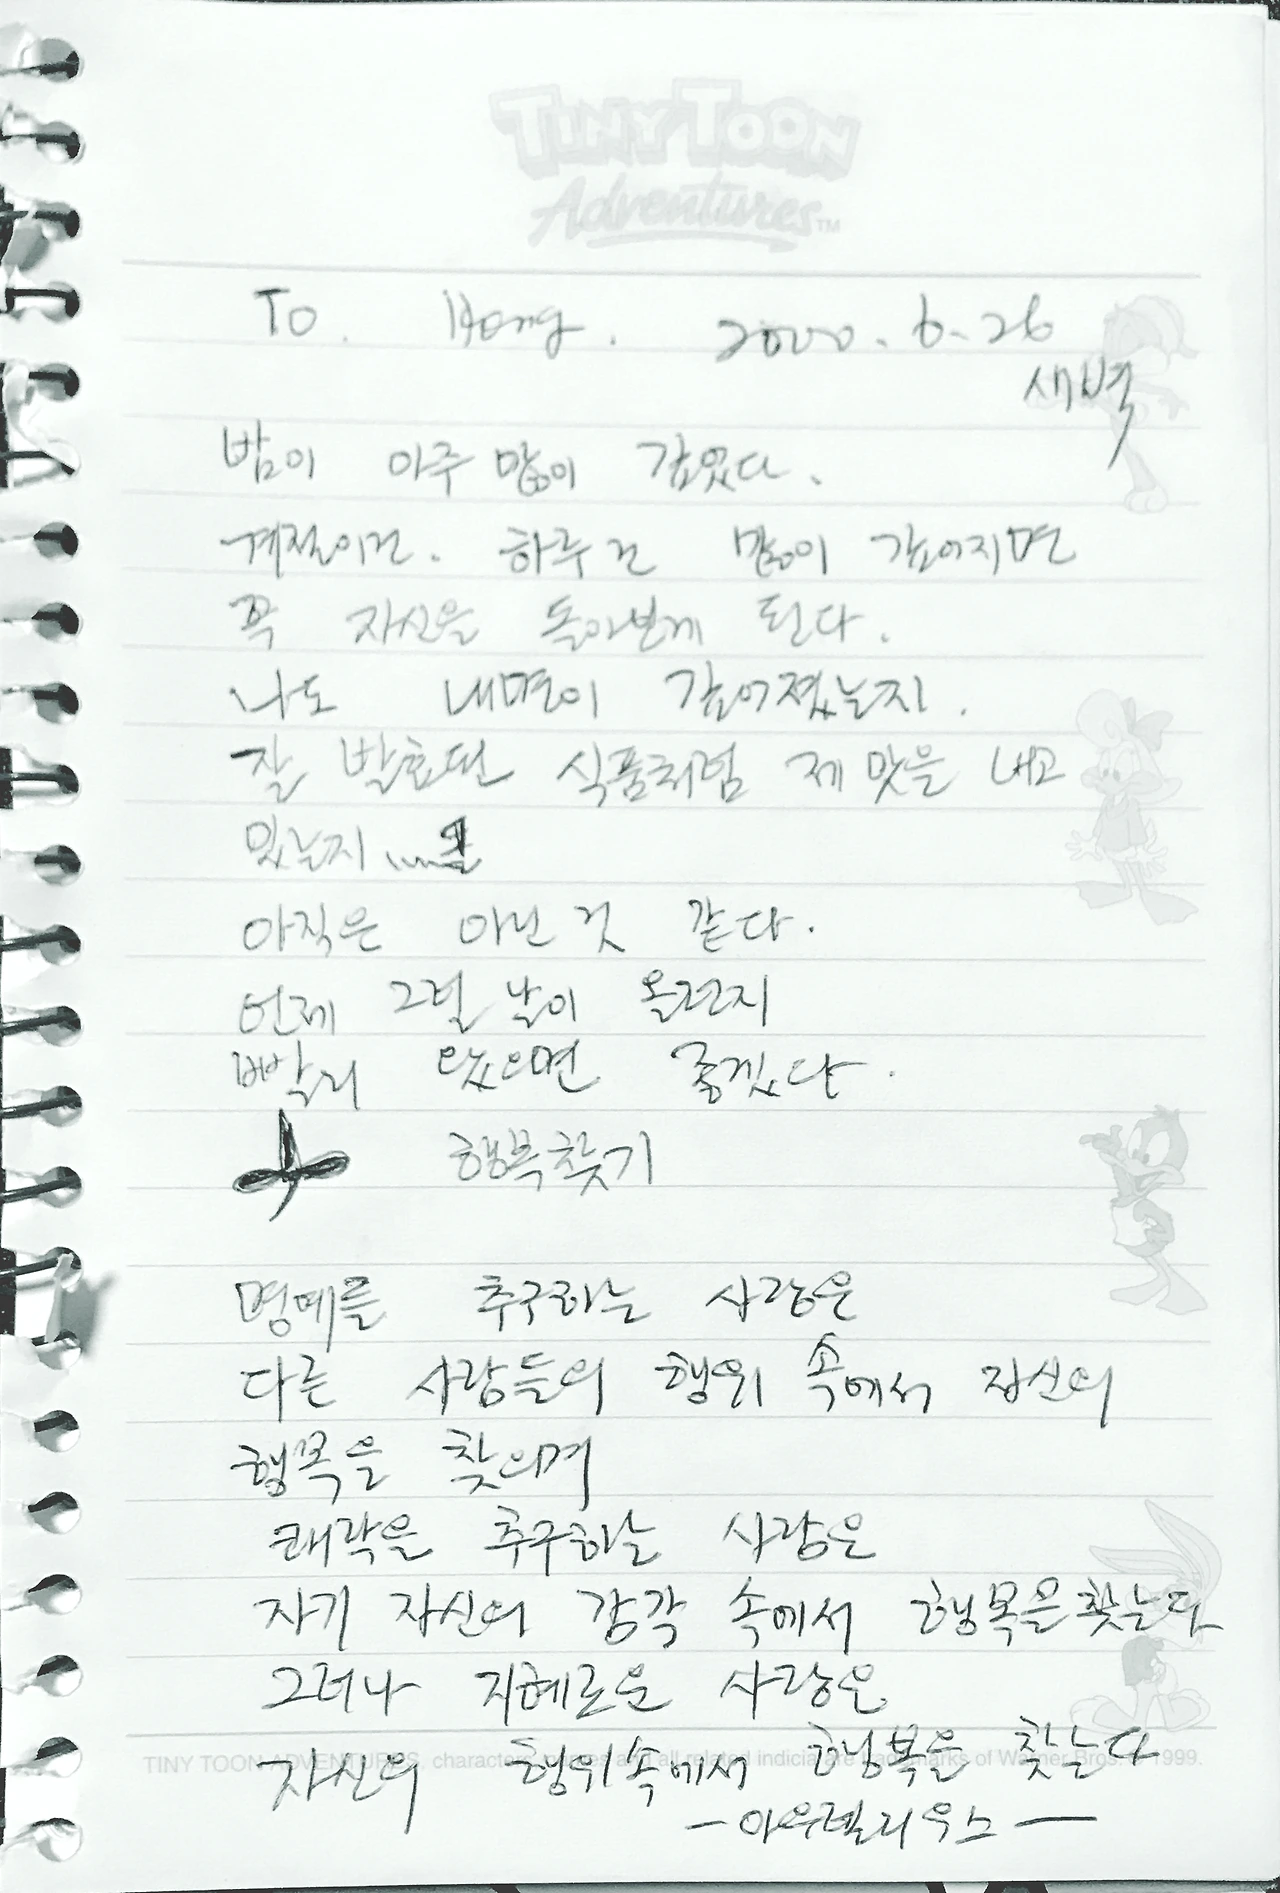 TINY TOON
Adventures TM
To. Hong. 2000. 6. 26
새벽
밤이 아주 많이 깊었다.
계절이건. 하루건 많이 깊어지면
꼭 자신을 돌아보게 된다.
나도 내면이 깊어졌는지.
잘 발효된 식품처럼 제 맛을 내고
있는지......
아직은 아닌 것 같다.
언제 그런 날이 올런지
빨리 왔으면 좋겠다.
행복찾기
명예를 추구하는 사람은
다른 사람들의 행위 속에서 자신의
행복을 찾으며
쾌락을 추구하는 사람은
자기 자신의 감각 속에서 행복을 찾는다
그러나 지혜로운 사람은
자신의 행위속에서 행복을 찾는다
TINY TOON ADVENTURES, characters, names and all related indicia are trademarks of Warner Bros. © 1999.
- 아우렐리우스 -